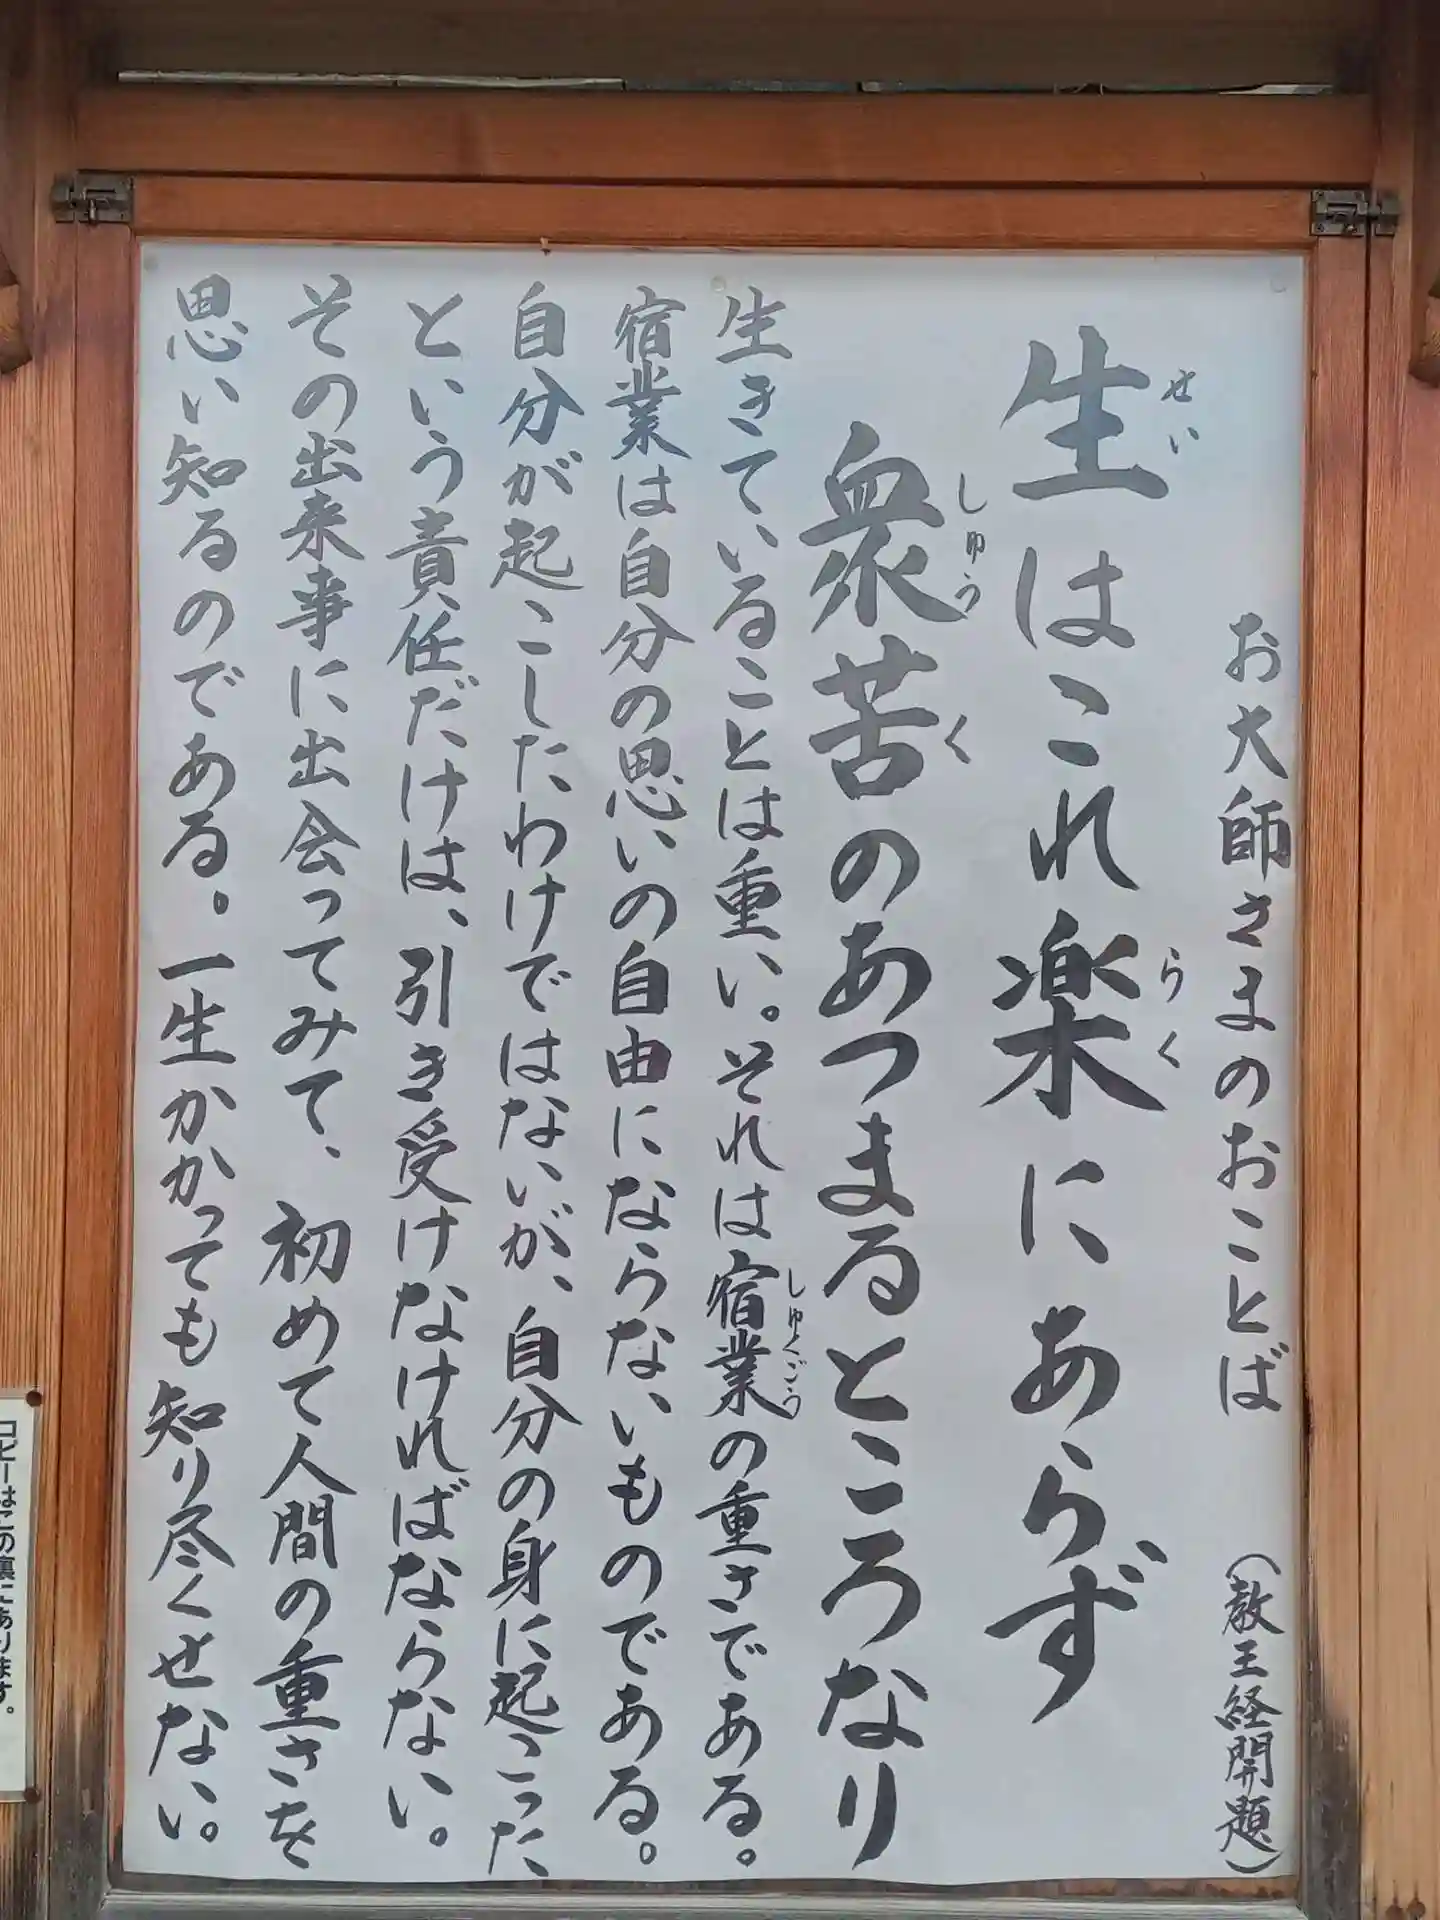 お大師さまのおことば (教王経開題)
生はこれ楽にあらず
せい
らく
衆苦のあつまるところなり
しゅう
く
生きていることは重い。それは宿業の重さである。
しゅくごう
宿業は自分の思いの自由にならないものである。
自分が起こしたわけではないが、自分の身に起こった
という責任だけは、引き受けなければならない。
その出来事に出会ってみて、初めて人間の重さを
思い知るのである。一生かかっても知り尽くせない。
コピーはこの裏にあります。